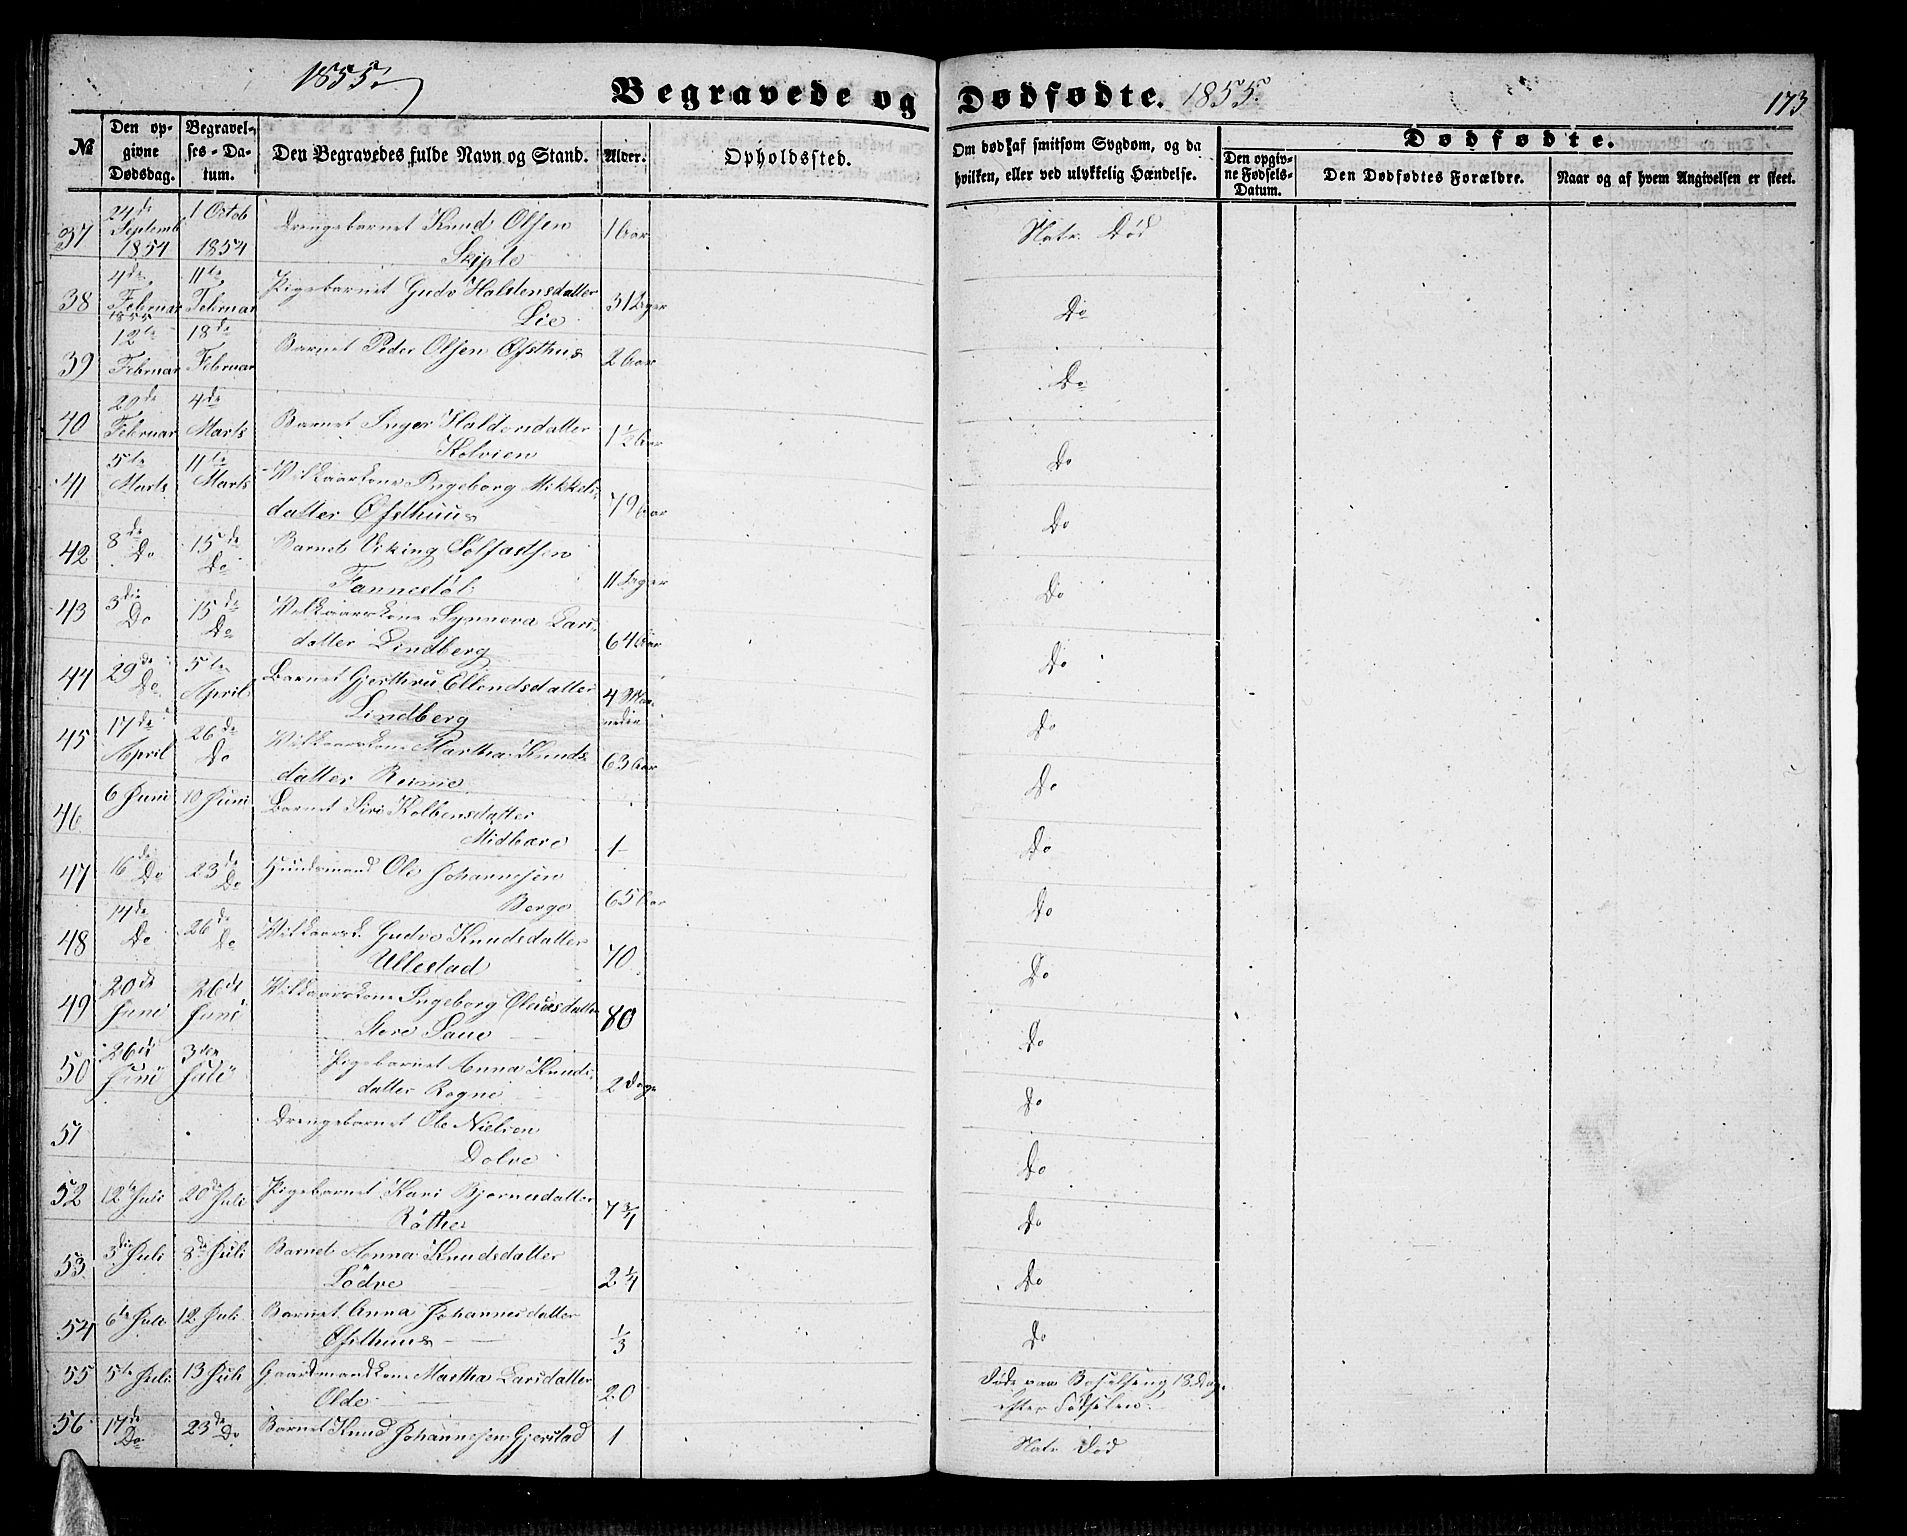 1855.
Begravede og Dødfødte. 1855.
173
№
Den opgivne Dødsdag.
Begravelses-Datum.
Den Begravedes fulde Navn og Stand.
Alder.
Opholdssted.
Om død af smitsom Sygdom, og da hvilken, eller ved ulykkelig Hændelse.
Dødfødte.
Den opgivne Fødsels-Datum.
Den Dødfødtes Forældre.
Naar og af hvem Angivelsen er skeet.
37 24de Septemb 1854 1 Octob 1854 Drengebarnet Knud Olsen 1 Aar Natr. Død
Skiple
38 4de Februar 1855 11te Februar Pigebarnet Gudv Haldensdatter 3 Dager Do
Lie
39 12te Februar 18de Februar Barnet Peder Olsen Øfsthus 2 Aar Do
40 Februar 4de Marts Barnet Inger Haldorsdatter 1½ Aar Do
Kolvien
41 5te Marts 11te Marts Vilkaarskone Ingeborg Mikkels- 79 Aar Do
datter Øfsthuus
42 8de Do 15de Do Barnet Viking Solfastsen 11 Dager Do
Fannestøl
43 3die Do 15de Do Vilkaarskone Synneva Lars- 64 Aar Do
datter Lindberg
44 29de Do 5te April Barnet Gjerthru Ellendsdatter 4 Maaneder Do
Lindberg
45 17de April 26de Do Vilkaarskone Martha Knuds- 63 Aar Do
datter Reime
46 6 Juni 10 Juni Barnet Siri Kolbensdatter 1 Do
Midbære
47 16de Do 23de Do Huusmand Ole Johannesen 65 Aar Do
Berge
48 14de Do 26de Do Vilkaarsk. Gudve Knudsdatter 70 Do
Ullestad
49 20de Juni 26de Juni Vilkaarskone Ingeborg Oleversdatter 80 Do
Store Saue
50 26de Juni 3den Juli Pigebarnet Anna Knuds- 2 Dage Do
datter Rogne
51 Drengebarnet Ole Nielsen Do
Dolve
52 12te Juli 20de Juli Pigebarnet Kari Bjørnesdatter 7¾ Do
Røthe
53 3die Juli 8de Juli Barnet Anna Knudsdatter 2¼ Do
Lödve
54 6te Juli 12 Juli Barnet Anna Johannesdatter ⅓ Do
Øfsthuus
55 5te Juli 13 Juli Gaardmandskone Martha Larsdatter 20 Døde paa Barselseng 13 Dag.
Olde efter Fødselen
56 17de Do 23de Do Barnet Knud Johannesen Gjerstad 1 Natr. Død